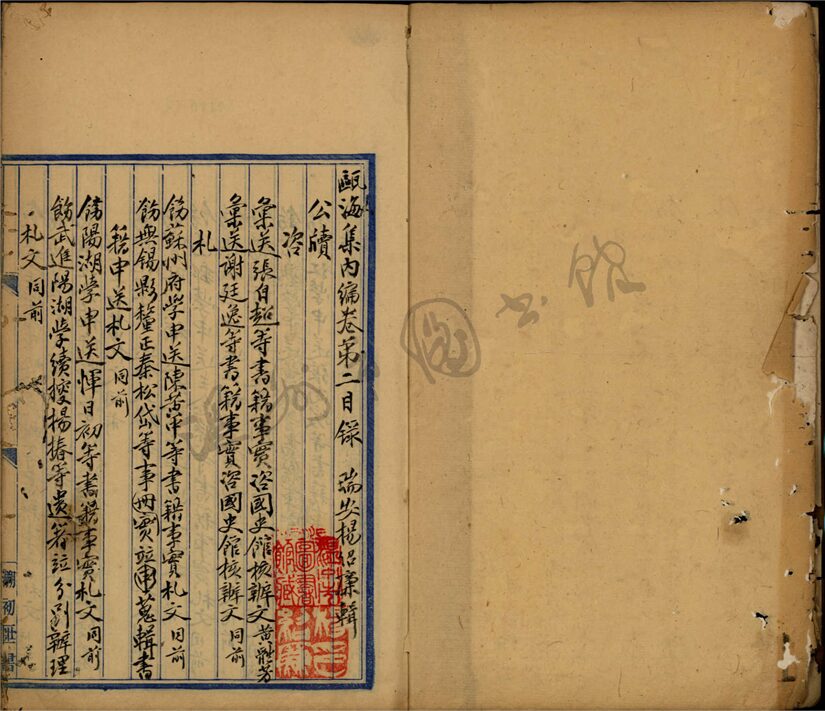 甌海集內編卷第二目錄 瑞安楊紹廉輯
公牘
咨
彙送張自超等書籍事實咨國史館核辦文 黃體芳
彙送謝廷逸等書籍事實咨國史館核辦文 同前
札
飭蘇州府學申送陳黃中等書籍事實札文 同前
飭無錫縣釐正秦松岱等事冊實竝蒐輯書
籍申送札文 同前
飭陽湖學申送惲日初等書籍事實札文 同前
飭武進陽湖學續搜楊椿等遺著竝分別辦理
札文 同前
圖書館